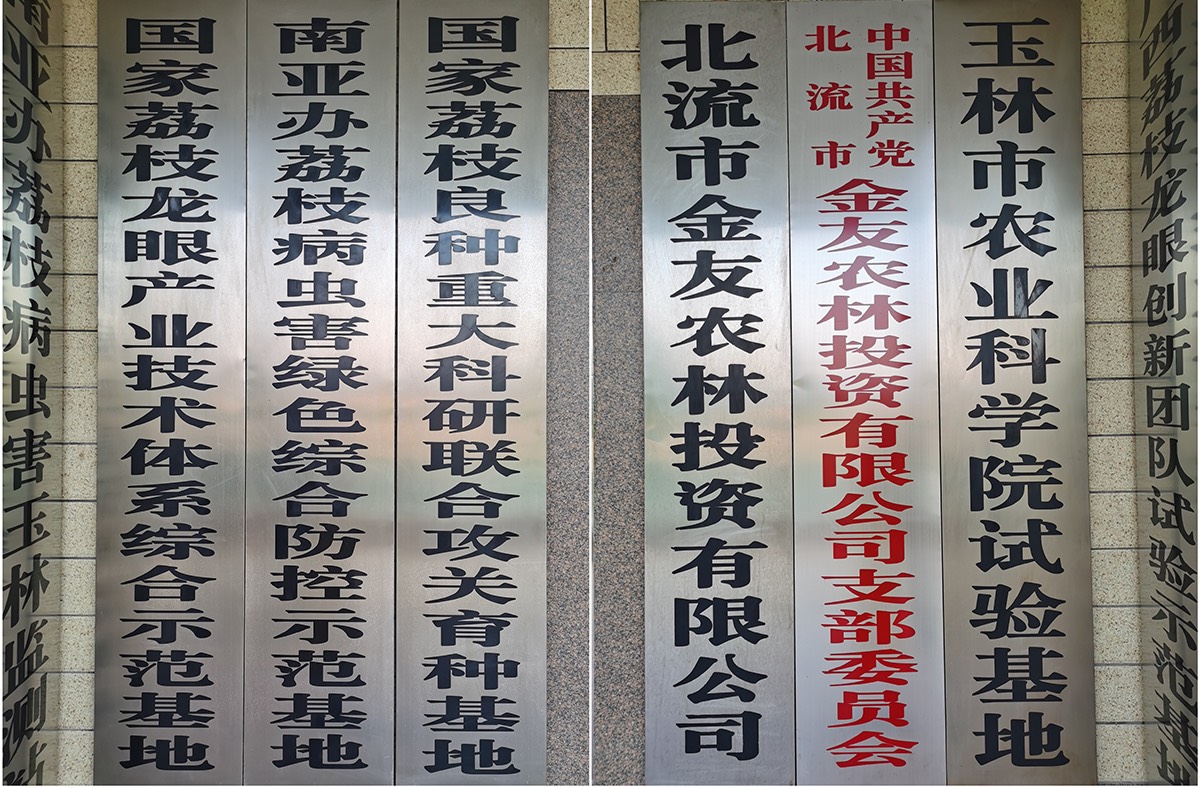 南亚办荔枝病虫害玉林监测站
国家荔枝龙眼产业技术体系综合示范基地
南亚办荔枝病虫害绿色综合防控示范基地
国家荔枝良种重大科研联合攻关育种基地
北流市金友农林投资有限公司
中国共产党
北流市
金友农林投资有限公司支部委员会
玉林市农业科学院试验基地
广西荔枝龙眼创新团队试验示范基地